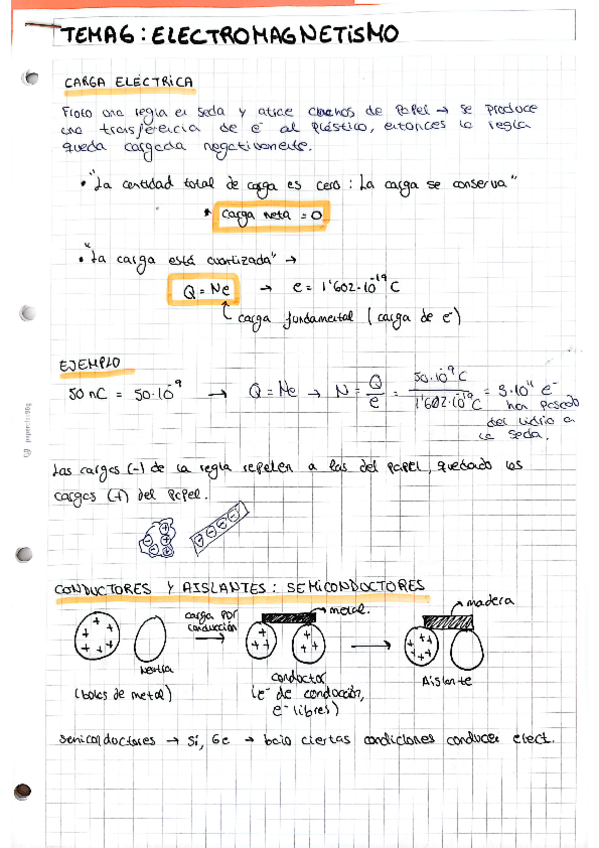 TEMA 6: ELECTROMAGNETISMO
CARGA ELÉCTRICA
Froto una regla en seda y atrae cachos de papel → se produce
una transferencia de e⁻ al plástico, entonces la regla
queda cargada negativamente.
• "La cantidad total de carga es cero: La carga se conserva"
* carga neta = 0
• "La carga está cuantizada" →
Q = Ne → e = 1'602·10⁻¹⁹ C
carga fundamental (carga de e⁻)
EJEMPLO
50 nC = 50·10⁻⁹ → Q = Ne → N = Q/e = 50·10⁻⁹C / 1'602·10⁻¹⁹C = 3·10¹¹ e⁻
han pasado
del vidrio a
la seda.
Las cargas (-) de la regla repelen a las del papel, quedado las
cargas (+) del papel.
CONDUCTORES Y AISLANTES: SEMICONDUCTORES
carga por
conducción
metal.
madera
Neutra
(bolas de metal)
conductor
(e⁻ de conducción,
e⁻ libres)
Aislante
semicolductores → Si, Ge → bajo ciertas condiciones conducen elect.